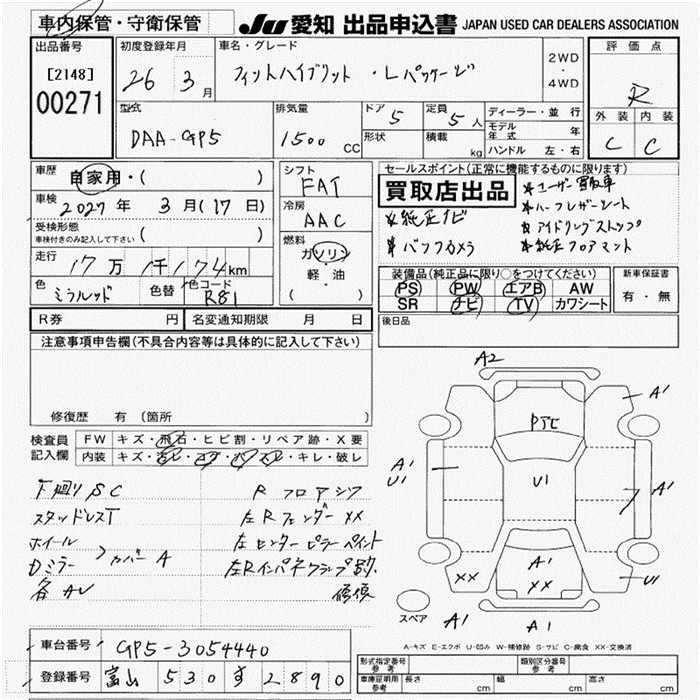 車内保管・守衛保管
JU 愛知 出品申込書 JAPAN USED CAR DEALERS ASSOCIATION
出品番号
[2148]
00271
初度登録年月
26 3月
車名・グレード
フィットハイブリット ・Lパッケージ
2WD
・
4WD
評価点
R
外装 内装
C C
型式
DAA-GP5
排気量
1500 CC
ドア 5
形状
定員 5人
積載 kg
ディーラー・並行
モデル年式 年
ハンドル 左・右
車歴 自家用・( )
車検 2027年 3月(17日)
受検形態
車検付きのみ記入して下さい ( )
走行 17万 1千174km
色 ミラノレッド 色替 色コード R81
シフト
FAT
冷房
AAC
燃料
ガソリン
軽・油
( )
セールスポイント(正常に機能するものに限ります)
買取店出品
*ユーザー買取車
*ハーフレザーシート
*純正ナビ
*アイドリングストップ
*バックカメラ
*純正フロアマット
装備品(純正品に限り○をつけてください)
PS PW エアB AW
SR ナビ TV カワシート
新車保証書
有・無
R券 円 名変通知期限 月 日
後日品
注意事項申告欄(不具合内容等は具体的に記入して下さい)
修復歴 有(箇所 )
検査員記入欄
FW キズ・飛石・ヒビ割・リペア跡・X要
内装 キズ・汚レ・コゲ・穴・ヌレ・キレ・破レ
下廻りSC
スタッドレスT
ホイール
Dミラー >カバーA
各AU
Rフロアシワ
左Rフェンダー XX
左センターピラーペイント
左Rインパネクランプ跡
修復
A2
A1
PTE
A1
U1
U1
A1
A1
XX
XX
U1
スペア
A1
A1
A-キズ E-エクボ U-凹み W-補修跡 S-サビ C-腐食 XX-交換済
車台番号 GP5-3054440
登録番号 富山 530 す 2890
形式指定番号
参考
類別区分番号
参考
車庫証明用
参考
長さ cm 幅 cm 高さ cm